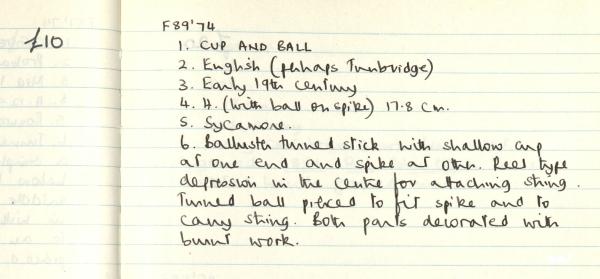 £10
F89'74
1. CUP AND BALL
2. English (perhaps Tunbridge)
3. Early 19th century
4. H. (with ball on spike) 17.8 cm.
5. Sycamore.
6. Balluster turned stick with shallow cup
at one end and spike at other. Reel type
depression in the centre for attaching string.
Turned ball pierced to fit spike and to
carry string. Both parts decorated with
burnt work.